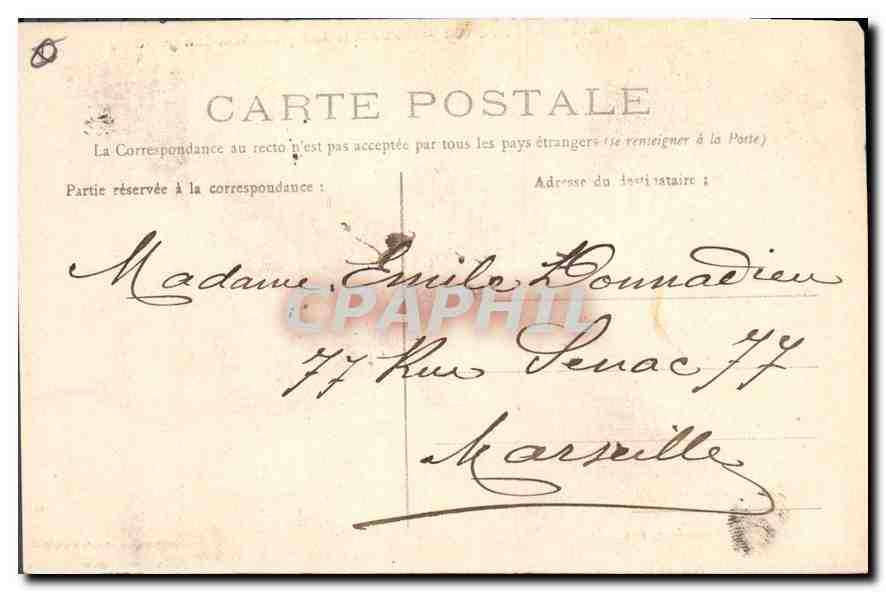 CARTE POSTALE
La Correspondance au recto n'est pas acceptée par tous les pays étrangers (se renseigner à la Poste)
Partie réservée à la correspondance :
Adresse du destinataire :
Madame Emile Donnadieu
CPAPHIL
77 Rue Senac 77
Marseille